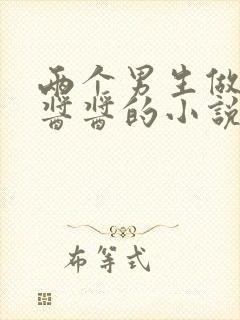 两个男生做
酱酱的小说
布等式